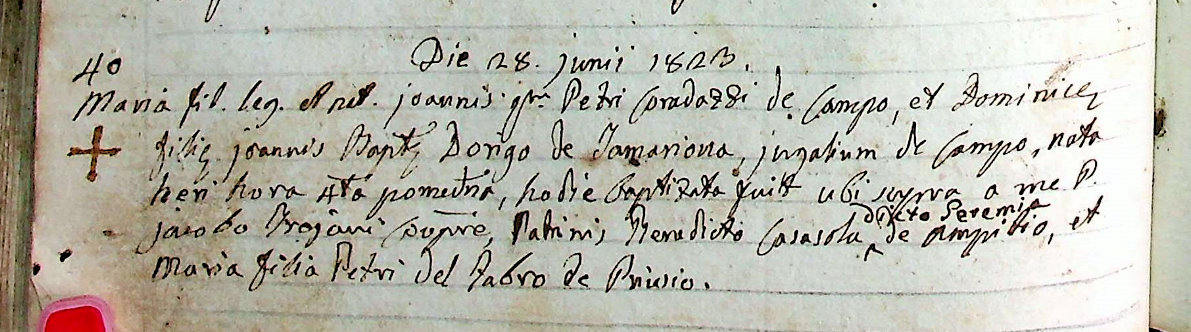 Die 28. junii 1823.
40
Maria fil. leg. et nat. joannis qm. Petri Coradazzi de Campo, et Dominicę
filię joannis Baptę Dorigo de Tamariova, jugalium de Campo, nata
heri hora 4ta pomedna, hodie baptizata fuit ubi supra a me P.
dicto Geremia
jacobo Trojani Patrinis Benedicto Casasola de Ampitio, et
Maria filia Petri del Fabro de Priusio.